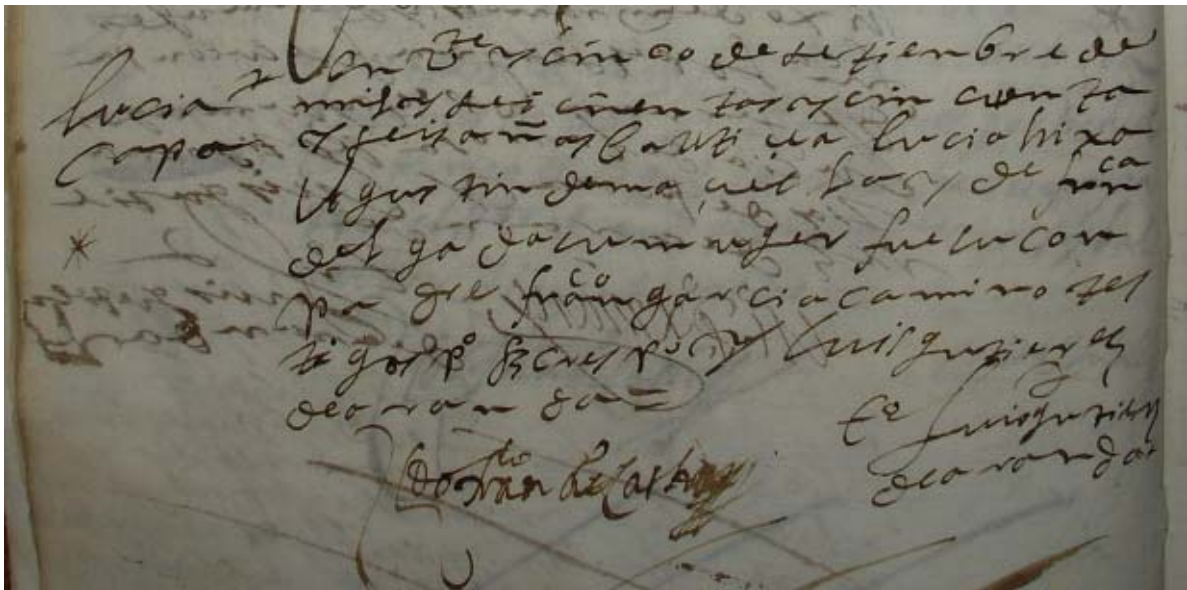 lucia
capa
en Vte y cinco de setienbre de
mil y seiscientos y cin cuenta
y seis años bautice a lucia hixa
Agustin de ma y de frca
delgada su muger fue su con
pa dre franco garcia camino tes
tigos po crespo y luis gutierrez
de aranda
luis gutierrez
de aranda